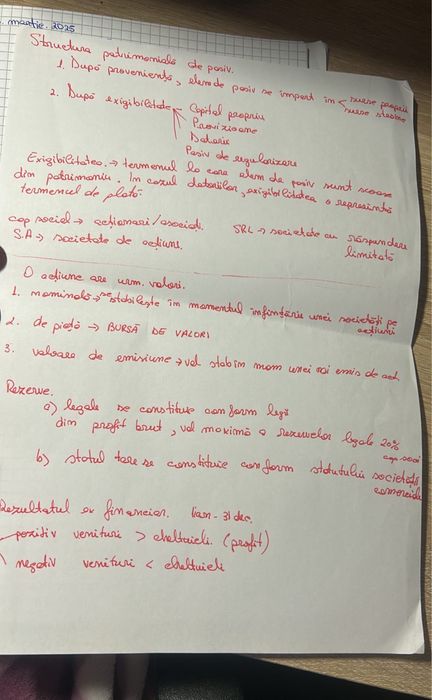 martie. 2025
Structura patrimonială de pasiv.
1. După proveniență, elem de pasiv se împart în < surse proprii
surse străine
2. După exigibilitate - Capital propriu
Provizioane
Datorii
Pasiv de regularizare
Exigibilitatea. → termenul la care elem de pasiv sunt scoase
din patrimoniu. În cazul datoriilor, exigibilitatea o reprezintă
termenul de plată.
cap social → acționari/asociați. SRL → societate cu răspundere
limitată
S.A → societate de acțiuni.
O acțiune are urm. valori.
1. nominală → se stabilește în momentul înființării unei societăți pe
acțiuni
2. de piață → BURSA DE VALORI
3. valoare de emisiune → val stab în mom unei noi emis de acț
Rezerve.
a) legale se constituie conform legii
din profit brut, val maximă a rezervelor legale 20%
cap soci
b) statutare se constituie conform statutului societății
comerciale
Rezultatul ex financiar. 1 ian - 31 dec.
pozitiv venituri > cheltuieli. (profit)
negativ venituri < cheltuieli